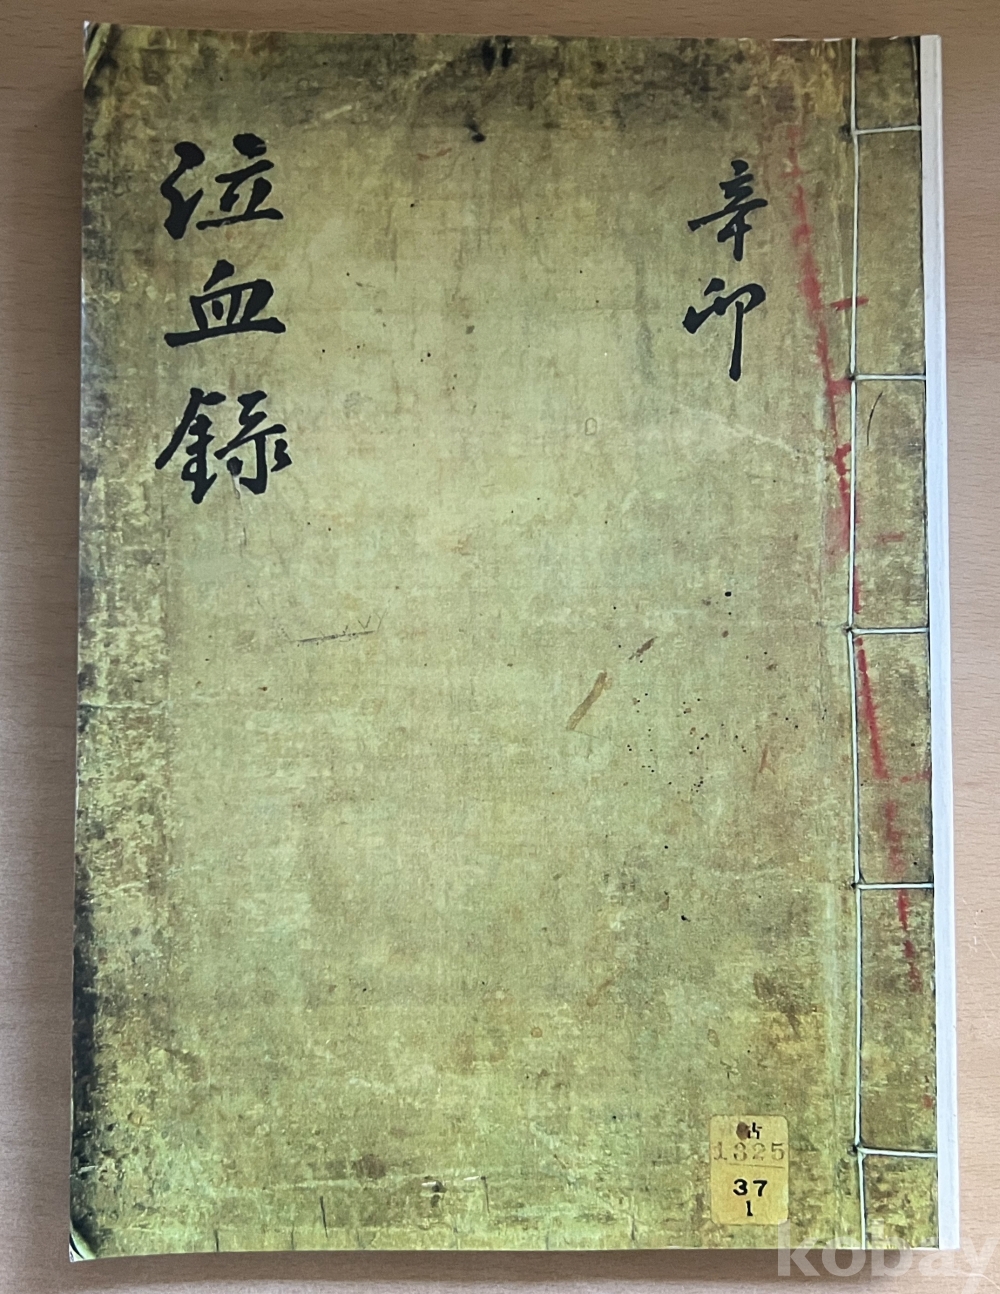 辛卯
泣血錄
古
1325
37
1
kobay